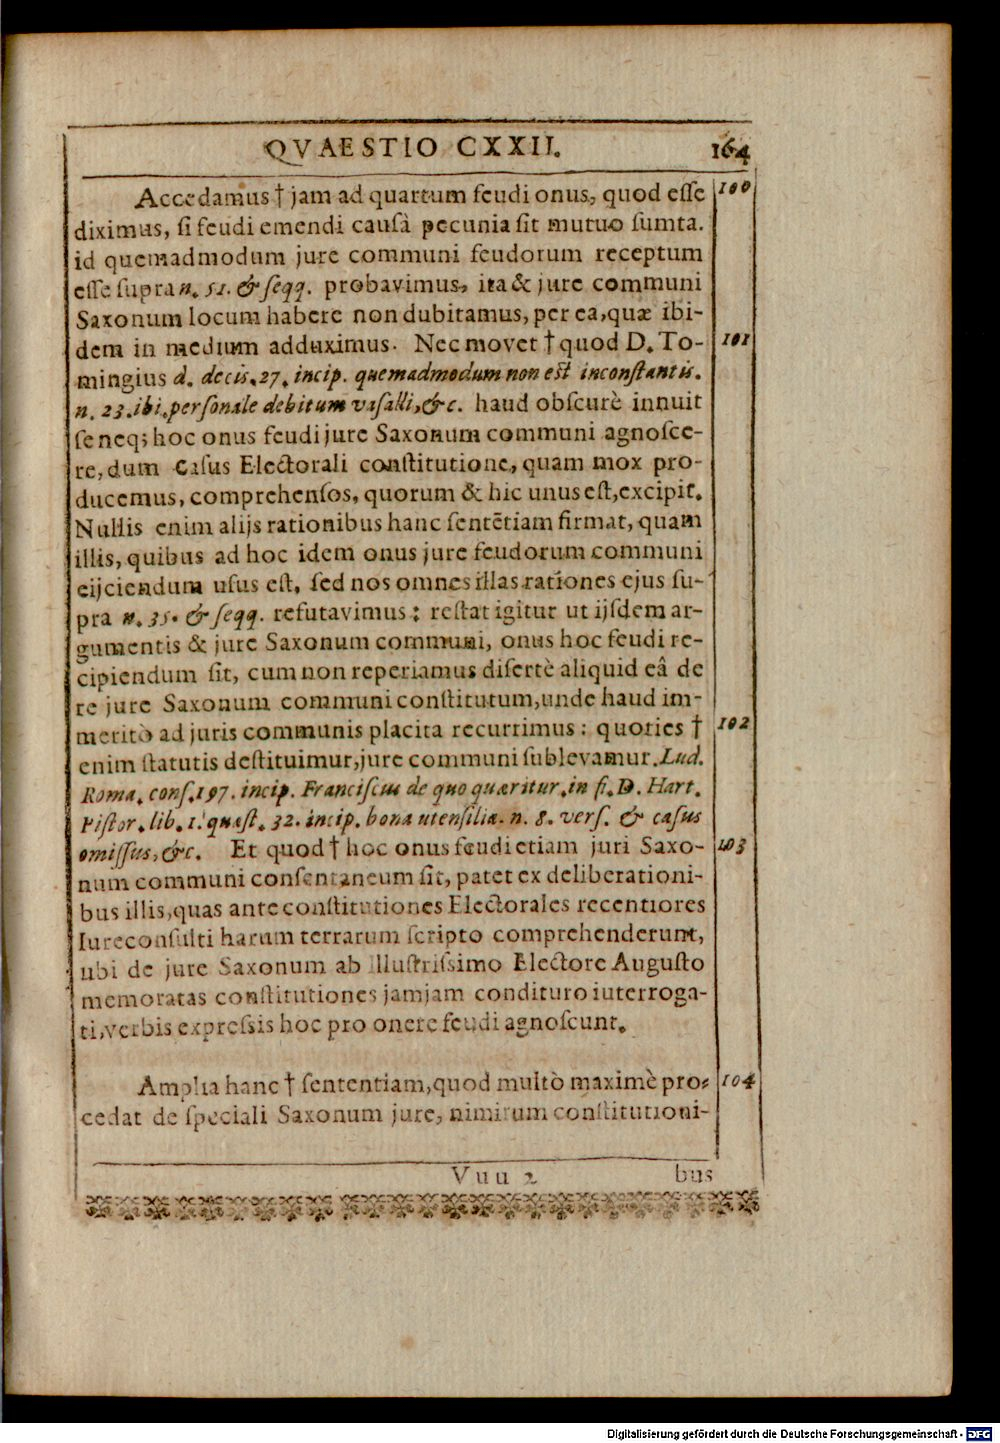 QVAESTIO CXXII. 164
Accedamus † jam ad quartum feudi onus, quod esse 100
diximus, si feudi emendi causâ pecunia sit mutuo sumta.
id quemadmodum jure communi feudorum receptum
esse supra n. 51. & seqq. probavimus, ita & jure communi
Saxonum locum habere non dubitamus, per ea, quæ ibi-
dem in medium adduximus. Nec movet † quod D. To- 101
mingius d. decis. 27. incip. quemadmodum non est inconstantis.
n. 23. ibi. personale debitum vasalli, &c. haud obscurè innuit
se neq; hoc onus feudi jure Saxonum communi agnosce-
re, dum casus Electorali constitutione, quam mox pro-
ducemus, comprehensos, quorum & hic unus est, excipit.
Nullis enim alijs rationibus hanc sentētiam firmat, quam
illis, quibus ad hoc idem onus jure feudorum communi
eijciendum usus est, sed nos omnes illas rationes ejus su-
pra n. 35. & seqq. refutavimus: restat igitur ut ijsdem ar-
gumentis & jure Saxonum communi, onus hoc feudi re-
cipiendum sit, cum non reperiamus disertè aliquid eâ de
re jure Saxonum communi constitutum, unde haud im-
meritò ad juris communis placita recurrimus: quoties † 102
enim statutis destituimur, jure communi sublevamur. Lud.
Roma. cons. 197. incip. Franciscus de quo quæritur. in fi. D. Hart.
Pistor. lib. 1. quæst. 32. incip. bona utensilia. n. 8. vers. & casus
omissus, &c. Et quod † hoc onus feudi etiam juri Saxo- 103
num communi consentaneum sit, patet ex deliberationi-
bus illis, quas ante constitutiones Electorales recentiores
Iureconsulti harum terrarum scripto comprehenderunt,
ubi de jure Saxonum ab illustrissimo Electore Augusto
memoratas constitutiones jamjam condituro iuterroga-
ti, verbis expressis hoc pro onere feudi agnoscunt.
Amplia hanc † sententiam, quod multò maximè pro- 104
cedat de speciali Saxonum jure, nimirum constitutioni-
Vuu 2 bus
Digitalisierung gefördert durch die Deutsche Forschungsgemeinschaft - DFG